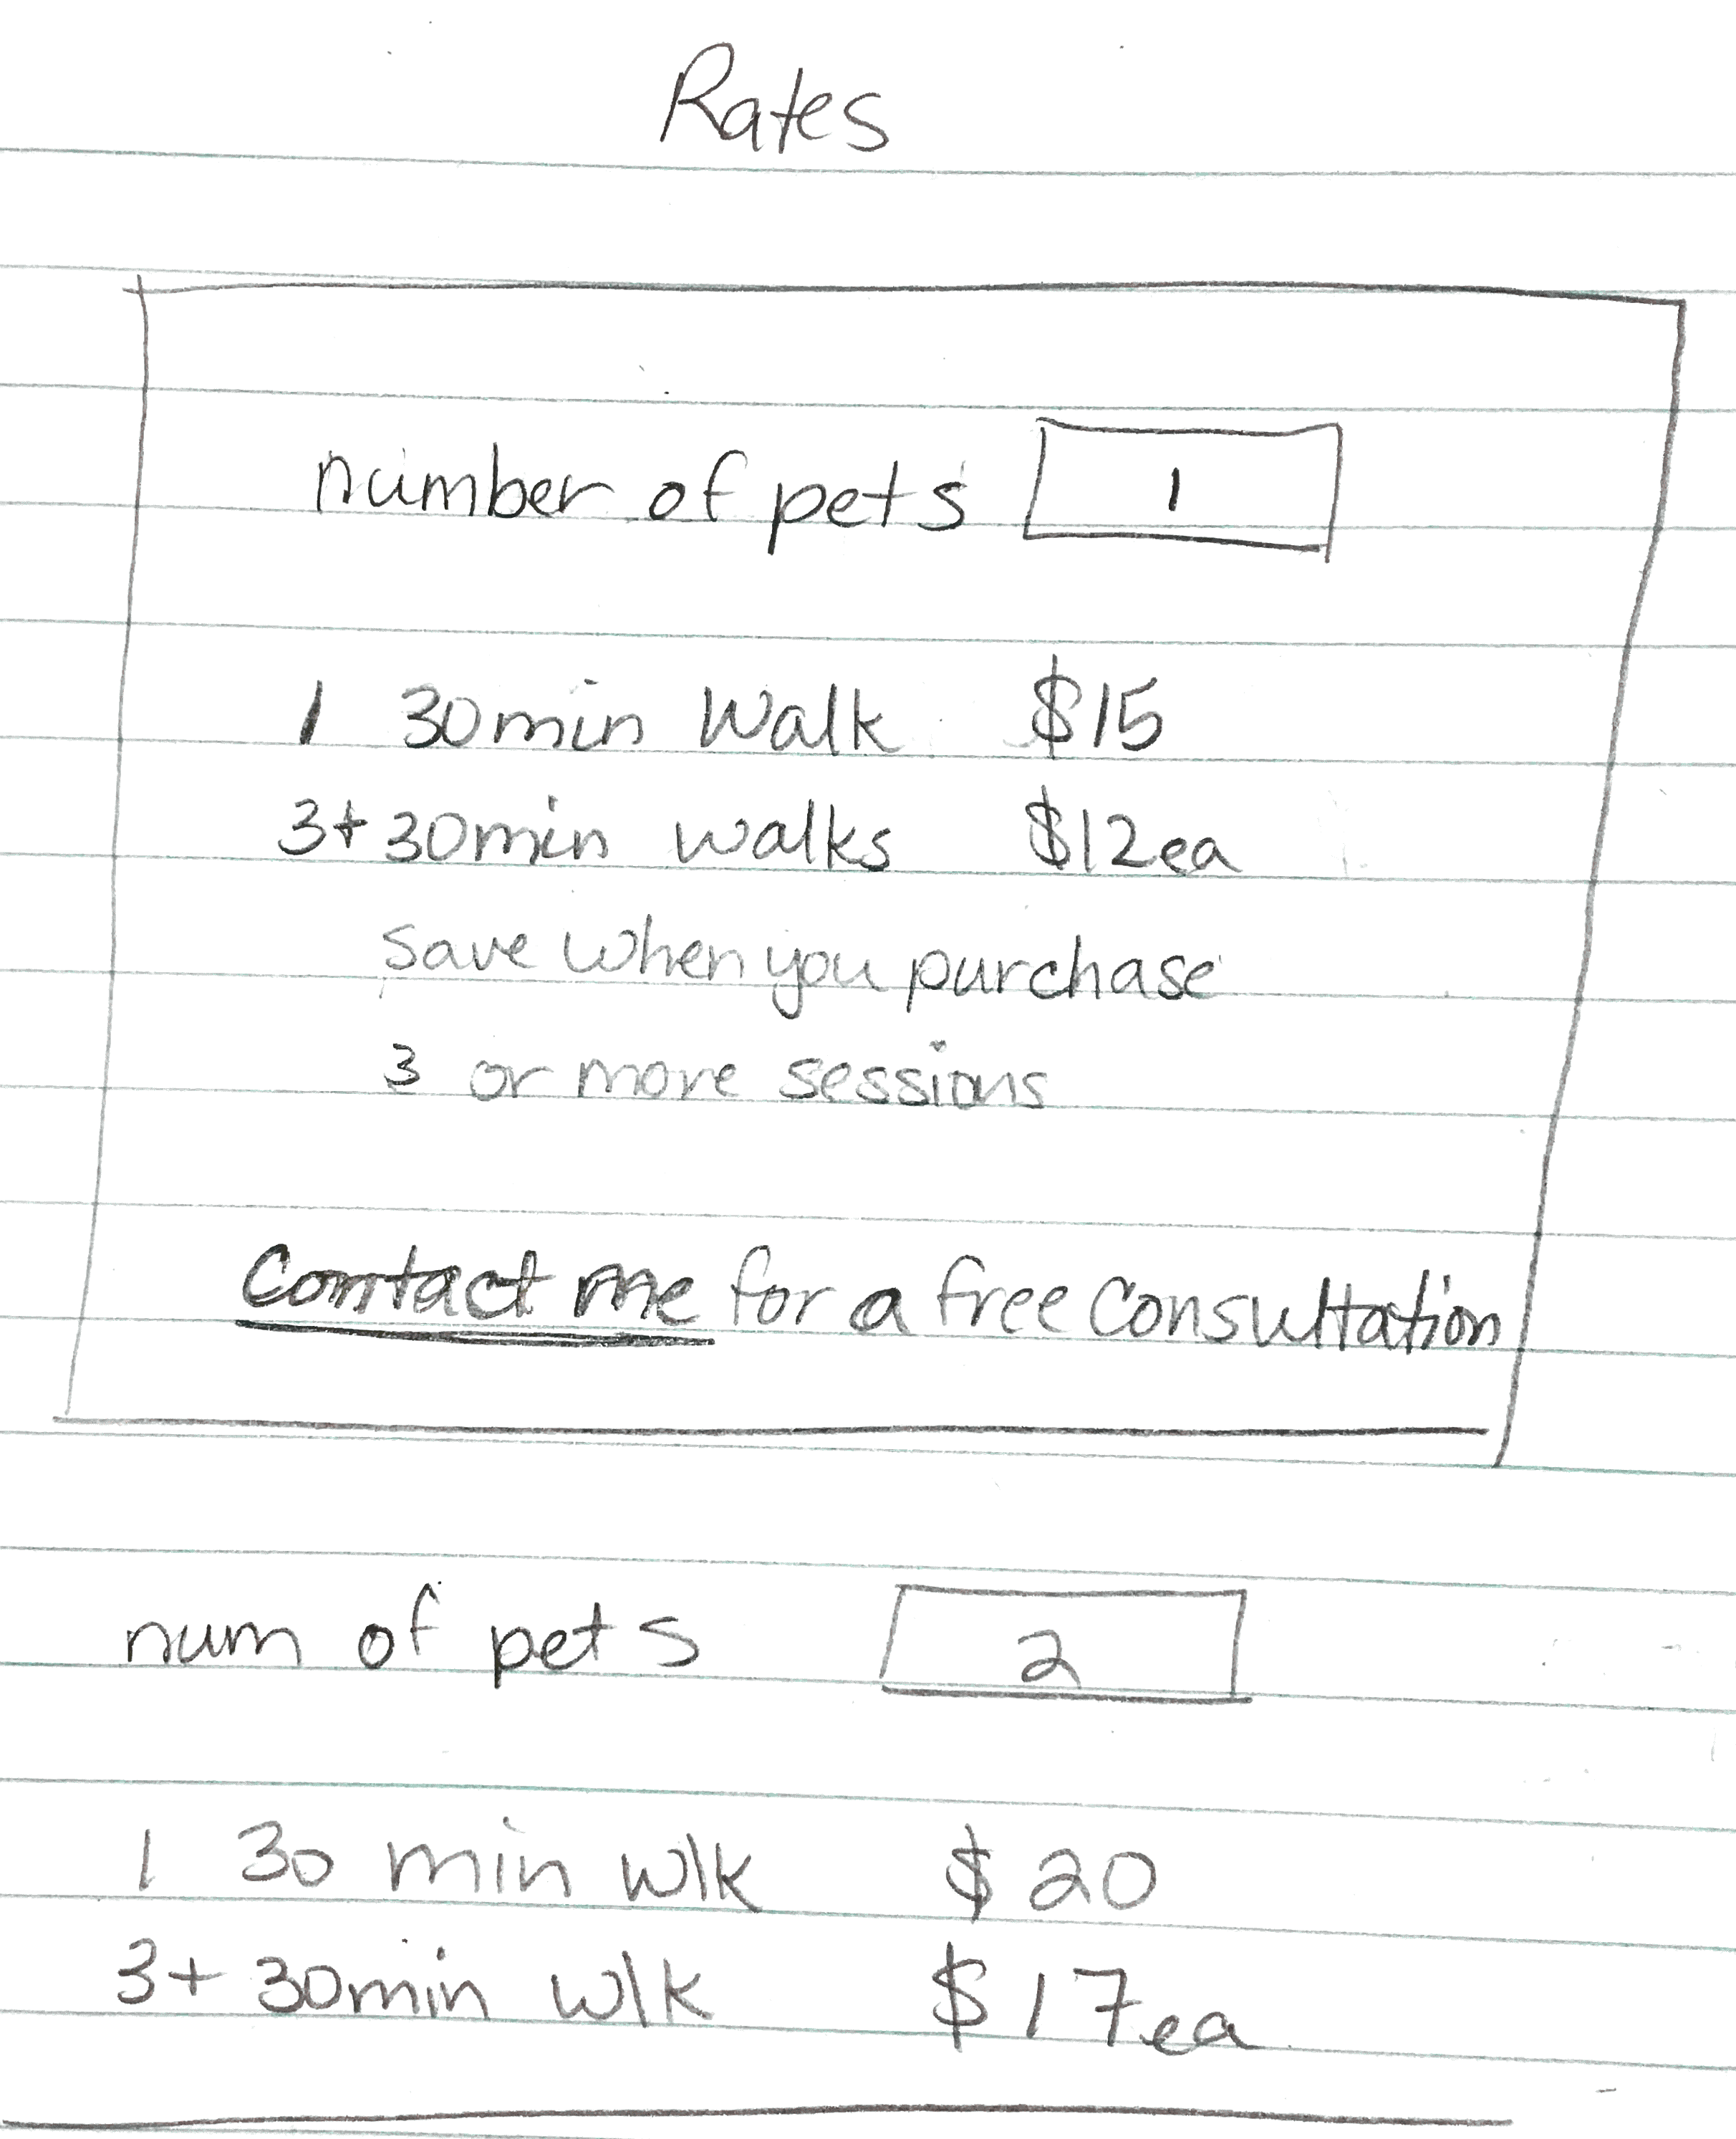 Rates
number of pets 1
1 30min Walk $15
3+ 30min walks $12ea
save when you purchase
3 or more sessions
Contact me for a free Consultation
num of pets 2
1 30 min wlk $20
3+ 30min wlk $17ea